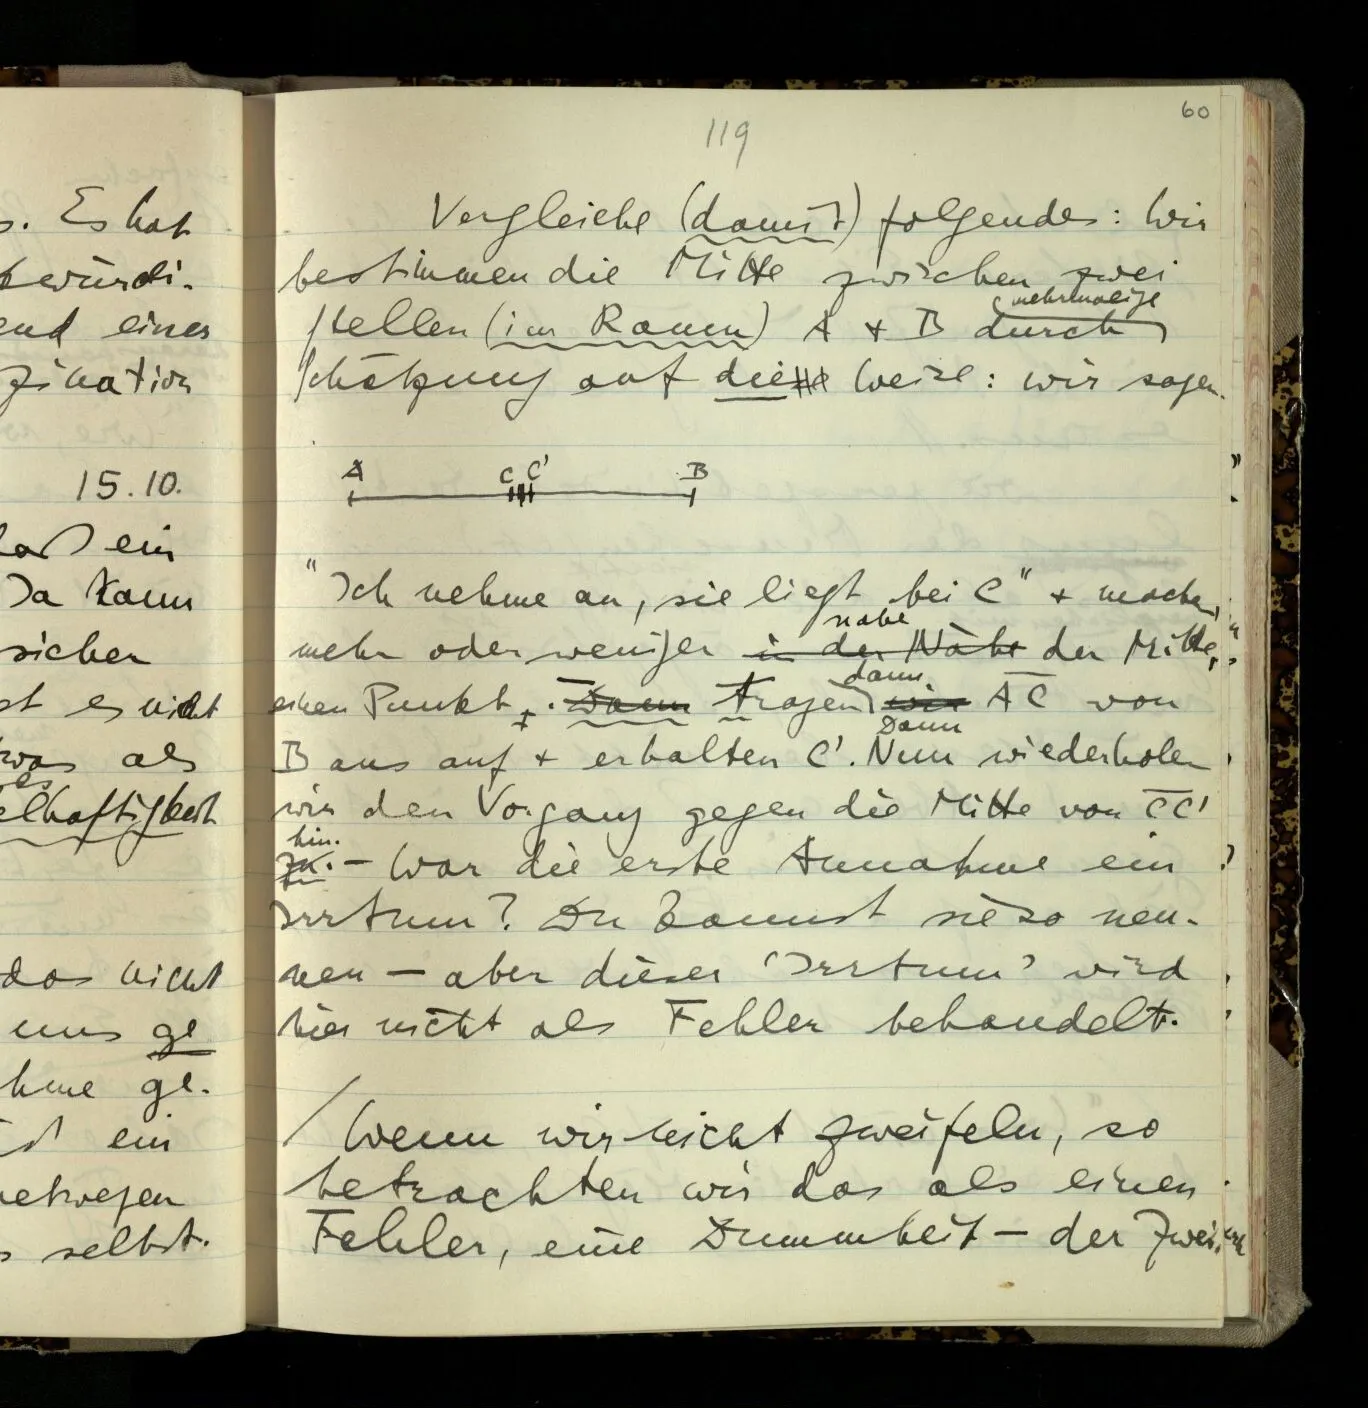 60
119
s. Es hat
end eines
15.10.
ein
Da kann
sicher
st es nicht
was als
es
elhaftigkeit
das nicht
uns ge
hme ge-
ein
selbst.
Vergleiche (damit) folgendes: Wir
bestimmen die Mitte zwischen zwei
mehrmalige
Stellen (im Raum) A + B durch
Schätzung auf diese Weise: wir sagen
A C C' B
"Ich nehme an, sie liegt bei C" + machen,
nahe
mehr oder weniger in der Nähe der Mitte,
dann
einen Punkt +. Dann tragen wir AC von
Dann
B aus auf + erhalten C'. Nun wiederholen
wir den Vorgang gegen die Mitte von CC'
hin.
zu. – War die erste Annahme ein
Irrtum? Du kannst sie so nen-
nen – aber dieser 'Irrtum' wird
hier nicht als Fehler behandelt.
/ Wenn wir nicht zweifeln, so
betrachten wir das als einen
Fehler, eine Dummheit – der Zwei-